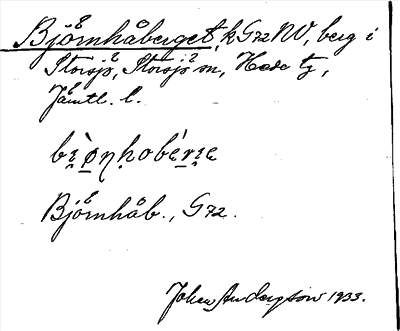 Björnhåberget, k G72 NV, berg i
Storsjö, Storsjö sn, Hede tg,
Jämtl. l.
bi̯ò̱ṇḥobérị̯e
Björnhåb., G72.
Johan Anderzson 1933.